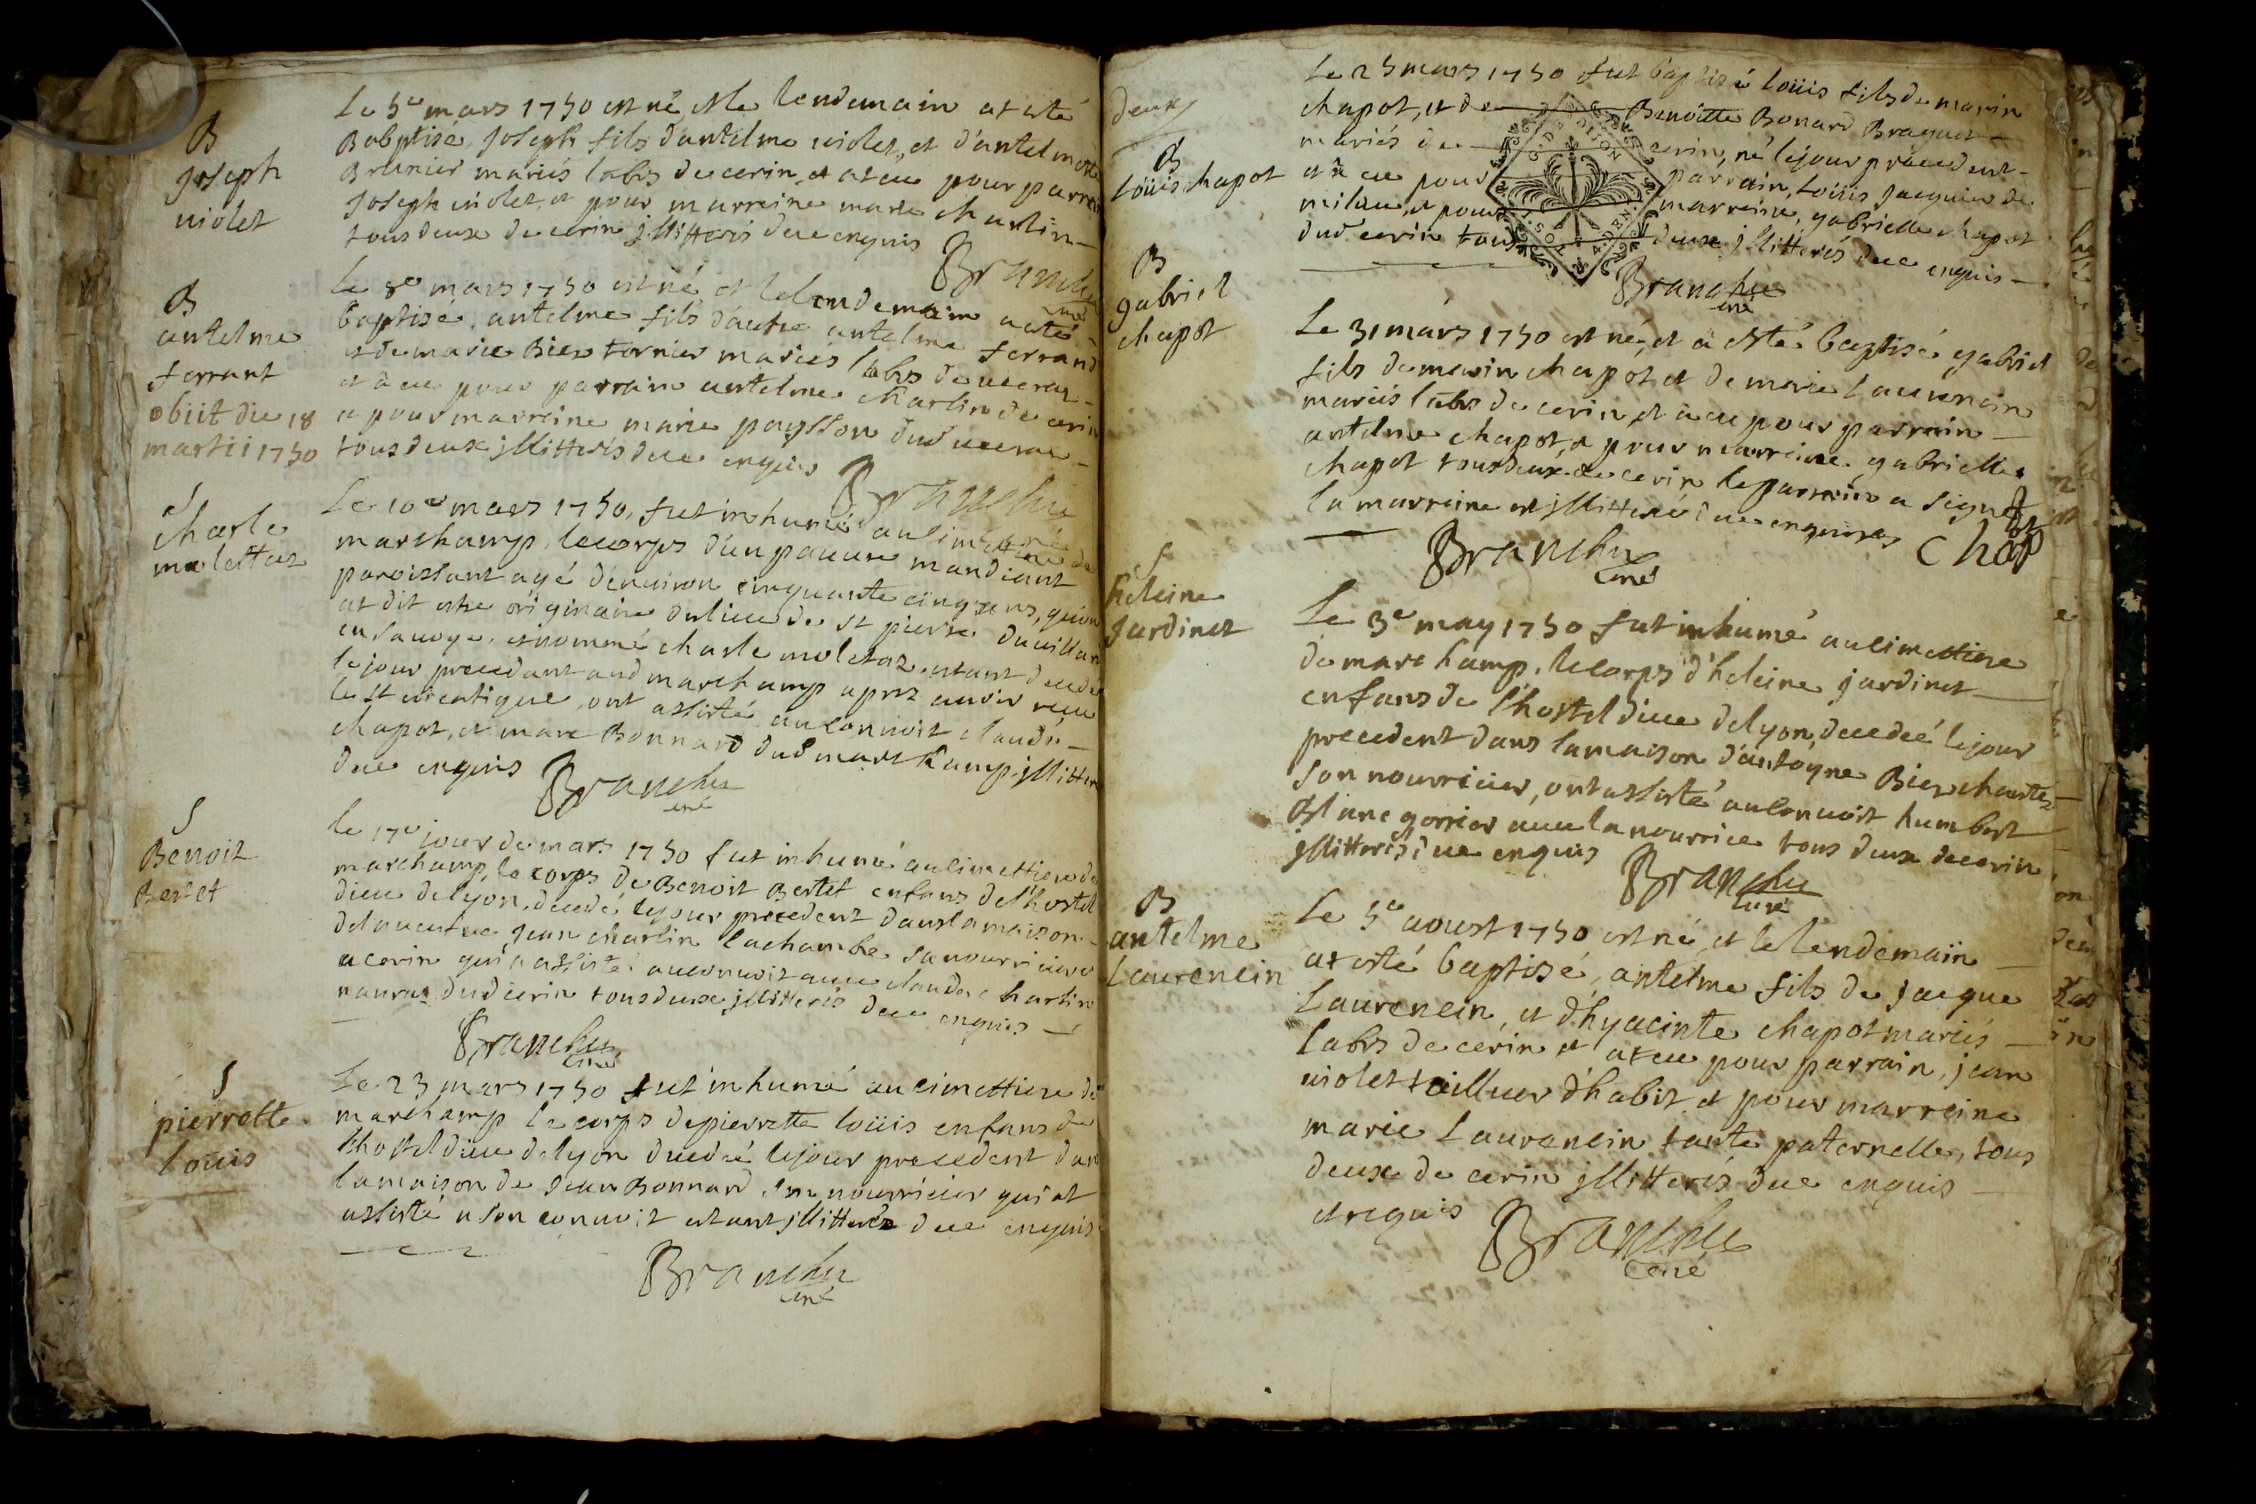 B
joseph
violet
Le 5e mars 1750 est né et le lendemain at esté
Babptisé, joseph fils d'antelme violet, et d'antelmette
Brunier mariés labrs de cerin et at eu pour parrain
joseph violet, et pour marreine marie charlin
tous deux de cerin jllitterés de ce enquis
Branchu
curé
B
antelme
ferrant
obiit die 18
martii 1750
Le 8e mars 1750 est né et le lendemain a eté
baptisé, antelme fils d'autre antelme ferrand
et de marie Biez tornier mariés labrs de
et a eu pour parrain antelme charlin de cerin
et pour marreine marie poysson dud
tous deux jllitterés de ce enquis
Branchu
curé
S
charle
molettaz
Le 10e mars 1750, fut inhumé au cimettiere de
marchamp, le corps d'un pauvre mandiant
paroissant agé d'environ cinquante cinq ans, qui
at dit estre originaire du lieu de st pierre
en savoye, et nommé charle moletaz, estant decedé
le jour precedant aud marchamp aprez avoir receu
le st viatique, ont assisté au convoit claude
chapot, et marc Bonnard dud marchamp jllitterés
de ce enquis
Branchu
curé
S
Benoit
Bertet
le 17e jour de mars 1750 fut inhumé au cimettiere de
marchamp, le corps de Benoit Bertet enfans de l'hostel
dieu de lyon, decedé le jour precedent dans la maison
de jean charlin lachambre sa nourriciere
a cerin qui a assisté au convoit avec claude charlin
dud cerin tous deux jllitterés de ce enquis
Branchu
curé
S
pierrette
loüis
Le 23 mars 1750 fut inhumé au cimettiere de
marchamp le corps de pierrette loüis enfans de
l'hostel dieu de lyon decedée le jour precedent dans
la maison de jean Bonnard son nourricier qui at
assisté a son convoit estant jllitteré de ce enquis
Branchu
curé
deux
B
loüis chapot
Le 25 mars 1750 fut baptisé loüis fils de marin
chapot, et de Benoitte Bonard Braguet
mariés de cerin, né le jour precedent
et a eu pour parrain, loüis jacquier de
milieu, et pour marreine, gabrielle chapot
dud cerin tous deux jllitterés de ce enquis
G. DE DIJON
Branchu
curé
B
gabriel
chapot
Le 31 mars 1750 est né, et a esté baptisé gabriel
fils de marin chapot, et de marie laurencin
mariés labrs de cerin, et a eu pour parrain
antelme chapot, et pour marreine gabrielle
chapot tous deux de cerin le parrain a signé
la marreine est jllitteré de ce enquise
Branchu
curé
Chapot
S
heleine
jardinet
Le 3e may 1750 fut inhumé au cimettiere
de marchamp, le corps d'heleine jardinet
enfans de l'hostel dieu de lyon, decedeé le jour
precedent dans la maison d'antoyne Biez
son nourricier, ont assisté au convoit humbert
gorrier avec la nourrice tous deux de cerin
jllitterés de ce enquis
Branchu
curé
B
antelme
Laurencin
Le 5e aoust 1750 est né, et le lendemain
at esté baptisé, antelme fils de jacque
Laurencin, et d'hyacinte chapot mariés
labrs de cerin et at eu pour parrain, jean
violet tailleur d'habit et pour marreine
marie Laurencin tante paternelle, tous
deux de cerin jllitterés de ce enquis
et requis
Branchu
curé